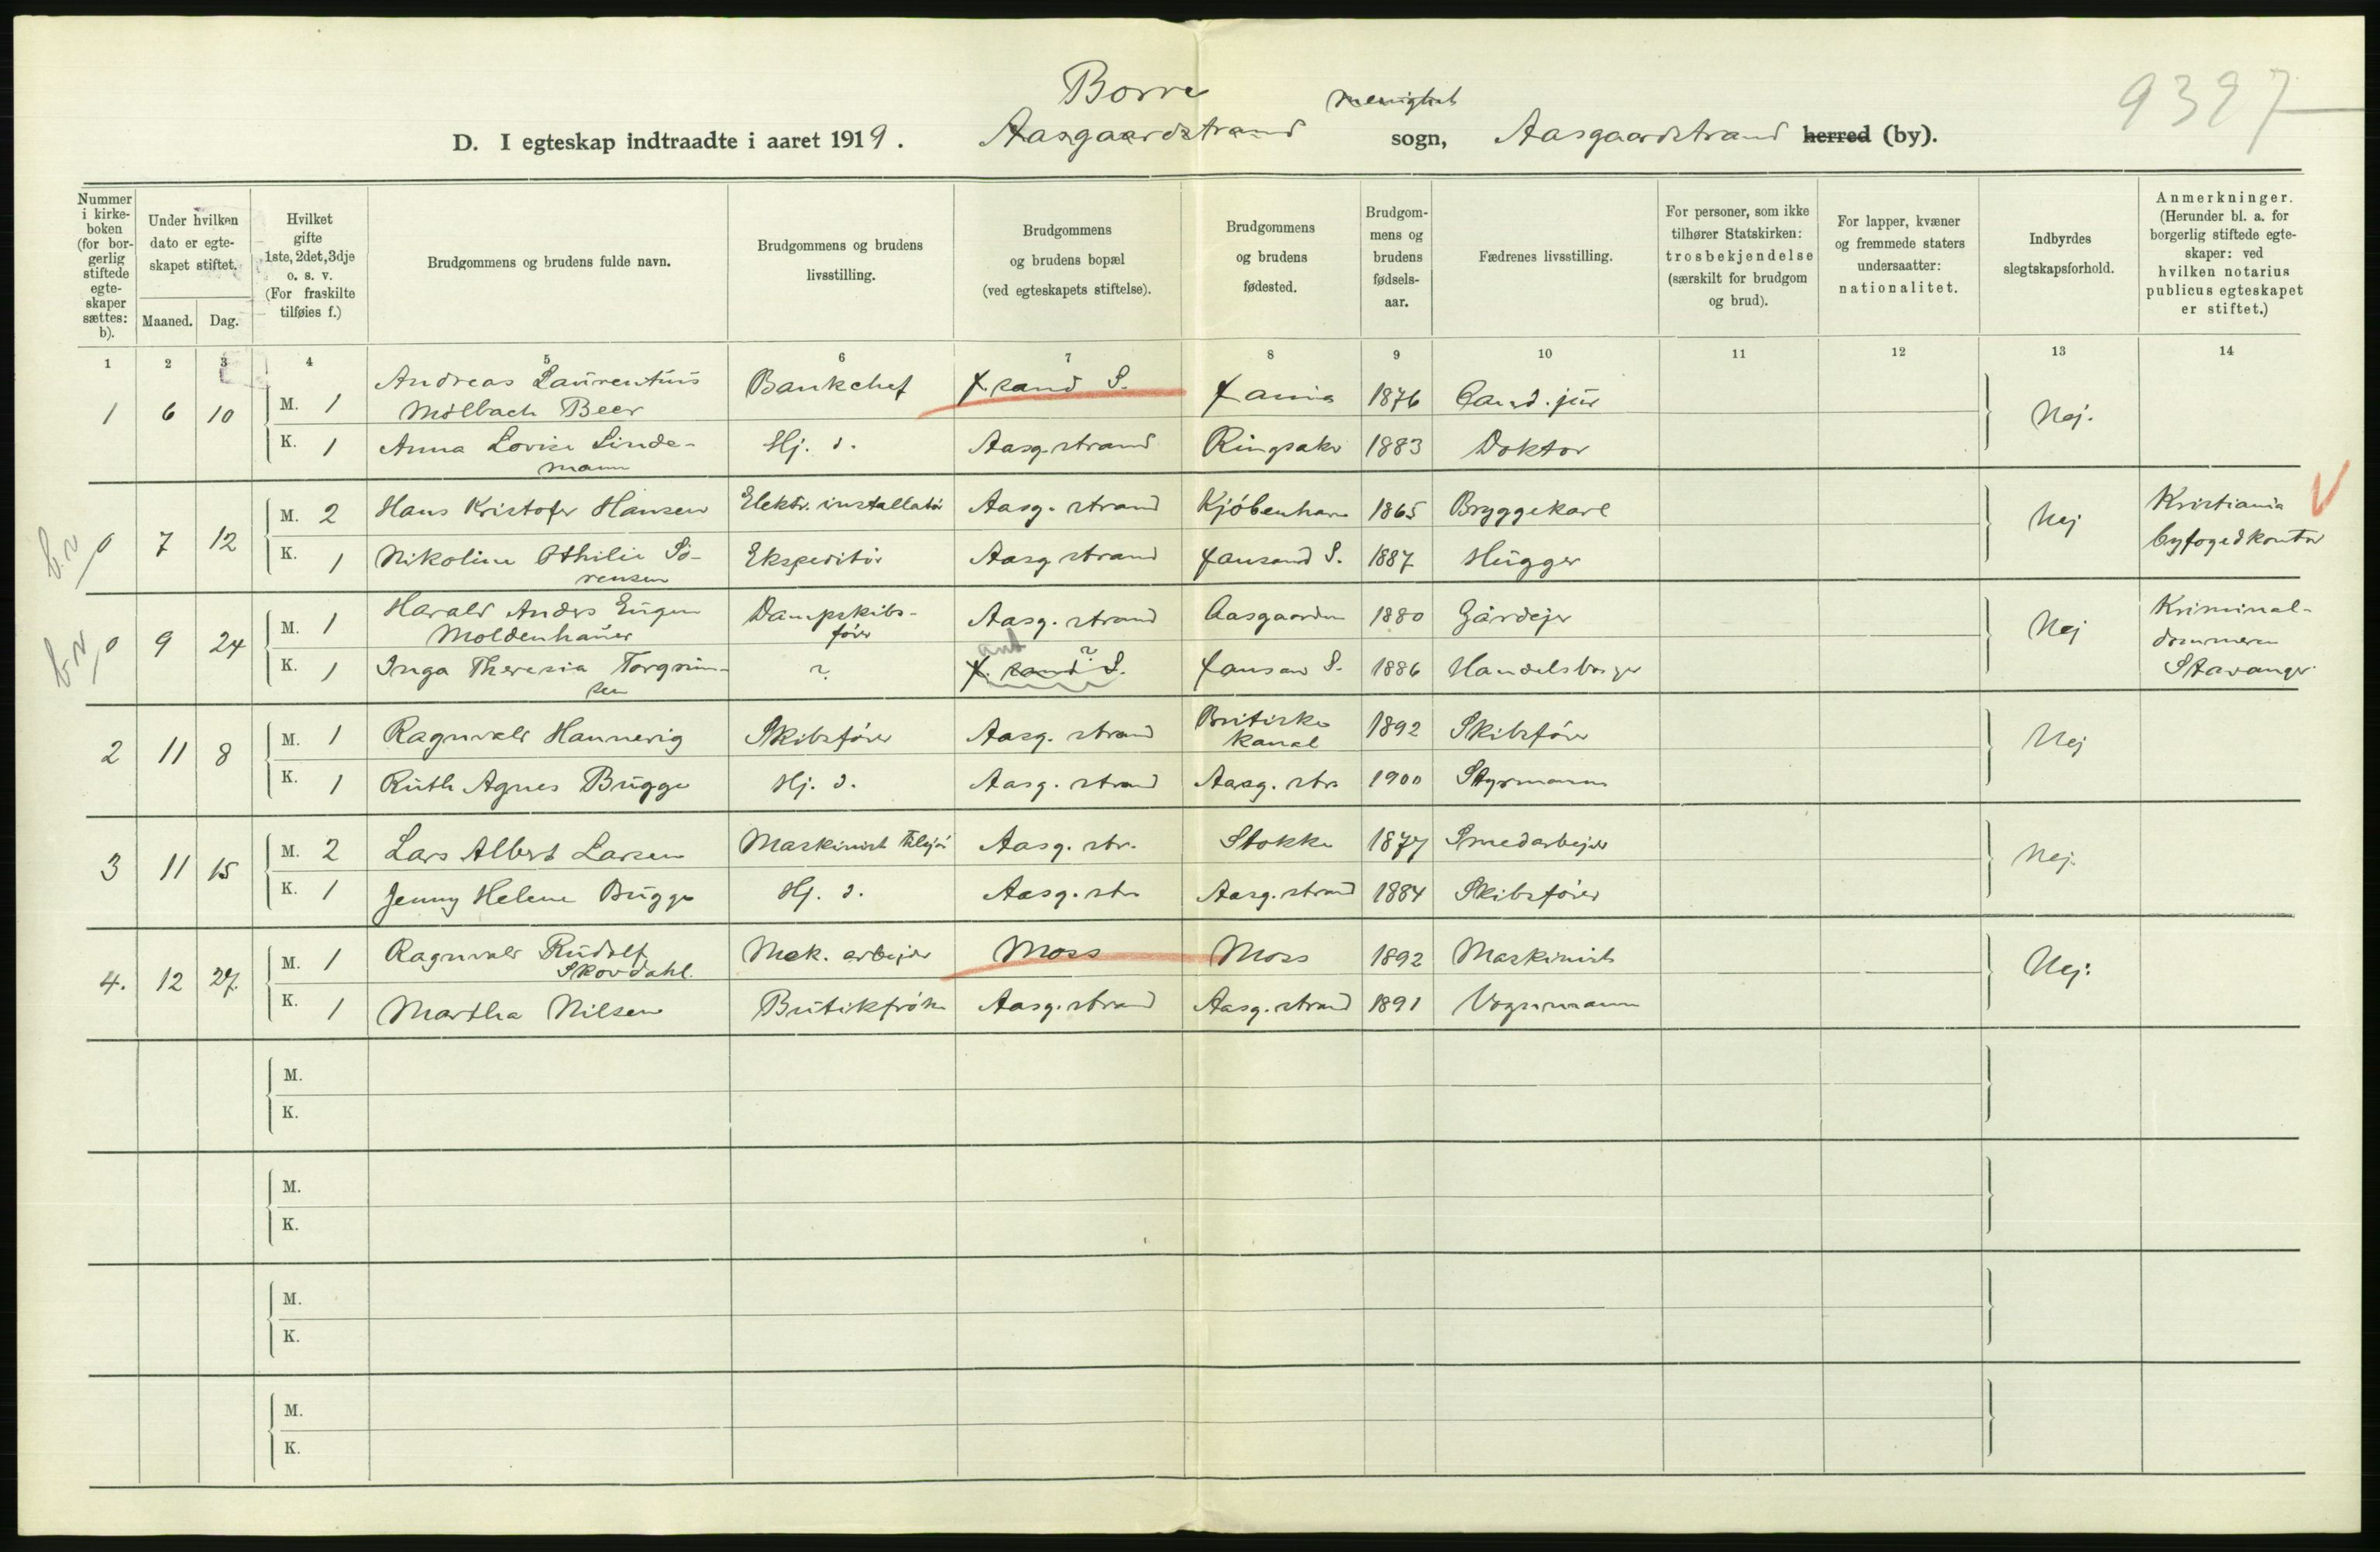 Borre
9397
D. I egteskap indtraadte i aaret 1919. Aasgaardstrand menighet sogn, Aasgaardstrand herred (by).
Nummer i kirkeboken (for borgerlig stiftede egteskaper sættes: b).
Under hvilken dato er egteskapet stiftet.
Maaned. Dag.
Hvilket gifte 1ste, 2det, 3dje o. s. v. (For fraskilte tilføies f.)
Brudgommens og brudens fulde navn.
Brudgommens og brudens livsstilling.
Brudgommens og brudens bopæl (ved egteskapets stiftelse).
Brudgommens og brudens fødested.
Brudgommens og brudens fødselsaar.
Fædrenes livsstilling.
For personer, som ikke tilhører Statskirken: trosbekjendelse (særskilt for brudgom og brud).
For lapper, kvæner og fremmede staters undersaatter: nationalitet.
Indbyrdes slegtskapsforhold.
Anmerkninger. (Herunder bl. a. for borgerlig stiftede egteskaper: ved hvilken notarius publicus egteskapet er stiftet.)
1 2 3 4 5 6 7 8 9 10 11 12 13 14
1 6 10 M. 1 Andreas Laurentius Mølbach Beer Bankchef X.sand S. Xania 1876 Cand. jur Nej.
K. 1 Anna Lovise Lindemann Hj. d. Aasg. strand Ringsaker 1883 Doktor
b.v. 0 7 12 M. 2 Hans Kristofer Hansen Elektr. installatør Aasg. strand Kjøbenhavn 1865 Bryggekarl Nej Kristiania byfogedkontor
K. 1 Nikoline Othilie Sørensen Ekspeditør Aasg strand Xansand S. 1887 Hugger
b.v. 0 9 24 M. 1 Harald Anders Eugen Moldenhauer Dampskibsfører Aasg. strand Aasgaarden 1880 Gårdejer Nej Kriminaldommeren Stavanger
K. 1 Inga Theresia Torgrimsen ? X. sand S. ? Xansan S. 1886 Handelsborger
2 11 8 M. 1 Ragnvald Hannevig Skibsfører Aasg. strand Britiske kanal 1892 Skibsfører Nej
K. 1 Ruth Agnes Bugge Hj. d. Aasg. strand Aasg. str. 1900 Styrmann
3 11 15 M. 2 Lars Albert Larsen Maskinist Aasg. str. Stokke 1877 Smedarbejder Nej.
K. 1 Jenny Helene Bugge Hj. d. Aasg. str. Aasg. strand 1884 Skibsfører
4. 12 27. M. 1 Ragnvald Rudolf Skovdahl. Mek. arbejder Moss Moss 1892 Maskinist Nej.
K. 1 Martha Nilsen Butikfrøken Aasg. strand Aasg. strand 1891 Vognmann
M.
K.
M.
K.
M.
K.
M.
K.